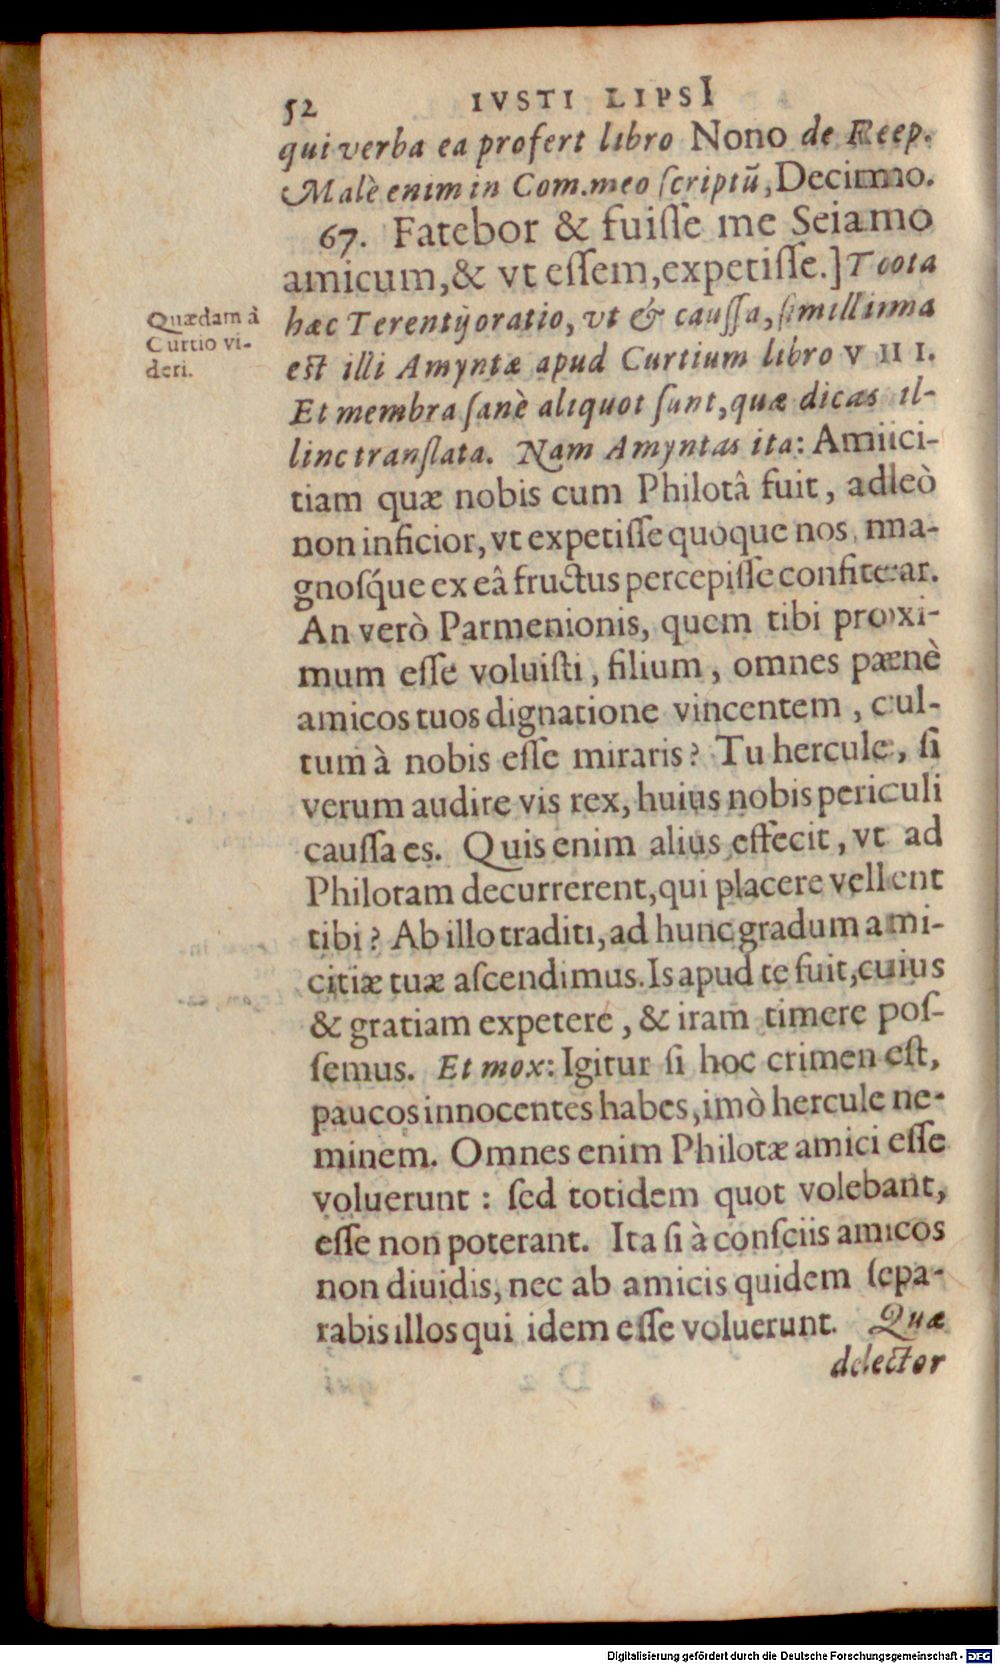 52 IVSTI LIPSI
qui verba ea profert libro Nono de Reep.
Malè enim in Com. meo ſcriptũ, Decimo.
67. Fatebor & fuiſſe me Seiano
amicum, & vt eſſem, expetiſſe.] Tota
Quædam à
Curtio vi-
deri.
hæc Terentij oratio, vt & cauſſa, ſimillima
eſt illi Amyntæ apud Curtium libro VIII.
Et membra ſanè aliquot ſunt, quæ dicas il-
linc tranſlata. Nam Amyntas ita: Amici-
tiam quæ nobis cum Philotâ fuit, adeò
non inficior, vt expetiſſe quoque nos, ma-
gnoſq́ue ex eâ fructus percepiſſe confitear.
An verò Parmenionis, quem tibi proxi-
mum eſſe voluiſti, filium, omnes pænè
amicos tuos dignatione vincentem, cul-
tum à nobis eſſe miraris? Tu hercule, ſi
verum audire vis rex, huius nobis periculi
cauſſa es. Quis enim alius effecit, vt ad
Philotam decurrerent, qui placere vellent
tibi? Ab illo traditi, ad hunc gradum ami-
citiæ tuæ aſcendimus. Is apud te fuit, cuius
& gratiam expetere, & iram timere poſ-
ſemus. Et mox: Igitur ſi hoc crimen eſt,
paucos innocentes habes, imò hercule ne-
minem. Omnes enim Philotæ amici eſſe
voluerunt: ſed totidem quot volebant,
eſſe non poterant. Ita ſi à conſciis amicos
non diuidis, nec ab amicis quidem ſepa-
rabis illos qui idem eſſe voluerunt. Quæ
delector
Digitalisierung gefördert durch die Deutsche Forschungsgemeinschaft - DFG